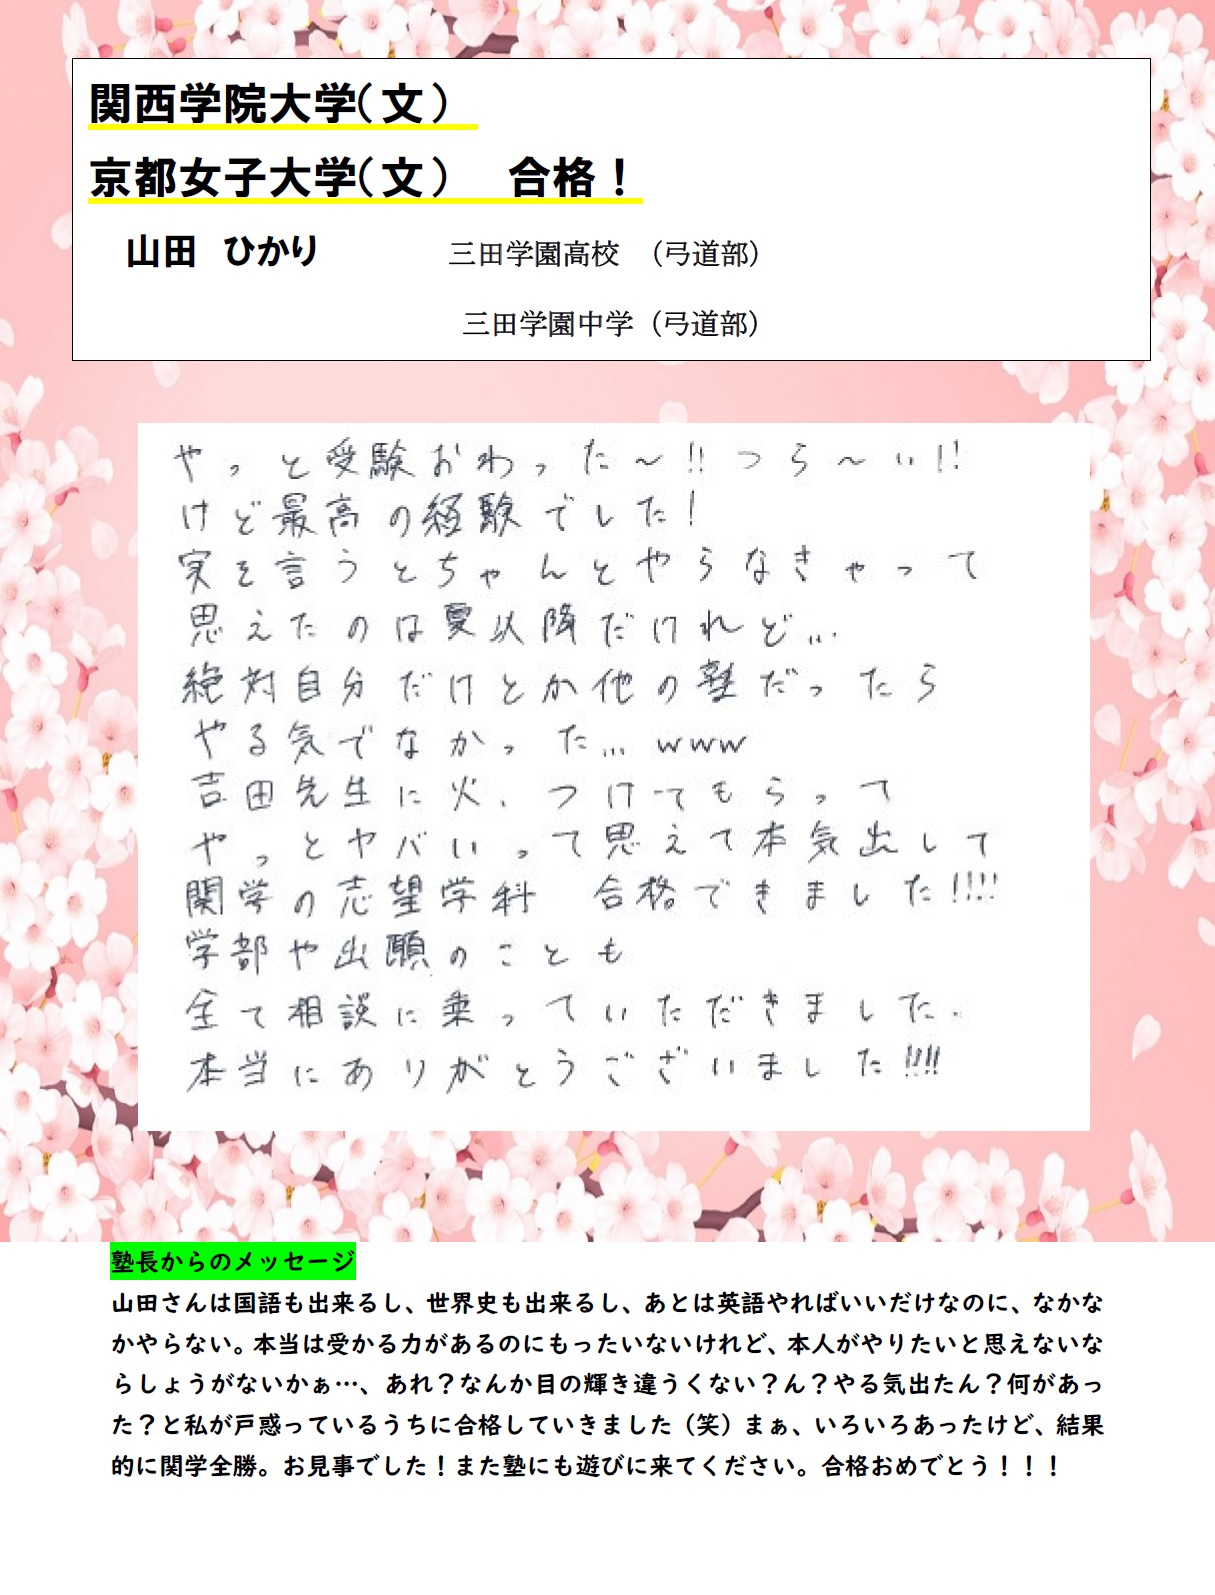 関西学院大学(文)
京都女子大学(文)　合格！
山田　ひかり　三田学園高校　(弓道部)
三田学園中学(弓道部)
やっと受験おわった～!!つら～い!!
けど最高の経験でした!
実を言うとちゃんとやらなきゃって
思えたのは夏以降だけれど...
絶対自分だけとか他の塾だったら
やる気でなかった...www
吉田先生に火、つけてもらって
やっとヤバいって思えて本気出して
関学の志望学科　合格できました!!!!
学部や出願のことも
全て相談に乗っていただきました.
本当にありがとうございました!!!!
塾長からのメッセージ
山田さんは国語も出来るし、世界史も出来るし、あとは英語やればいいだけなのに、なかな
かやらない。本当は受かる力があるのにもったいないけれど、本人がやりたいと思えないな
らしょうがないかぁ…、あれ？なんか目の輝き違うくない？ん？やる気出たん？何があっ
た？と私が戸惑っているうちに合格していきました（笑）まぁ、いろいろあったけど、結果
的に関学全勝。お見事でした！また塾にも遊びに来てください。合格おめでとう！！！